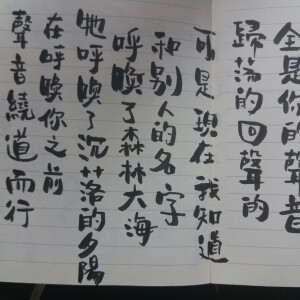 全是你的聲音
歸蕩的回聲的
可是現在我知道
和別人的名字
呼喚了森林大海
牠呼喚了沉落的夕陽
在呼喚你之前
聲音繞道而行